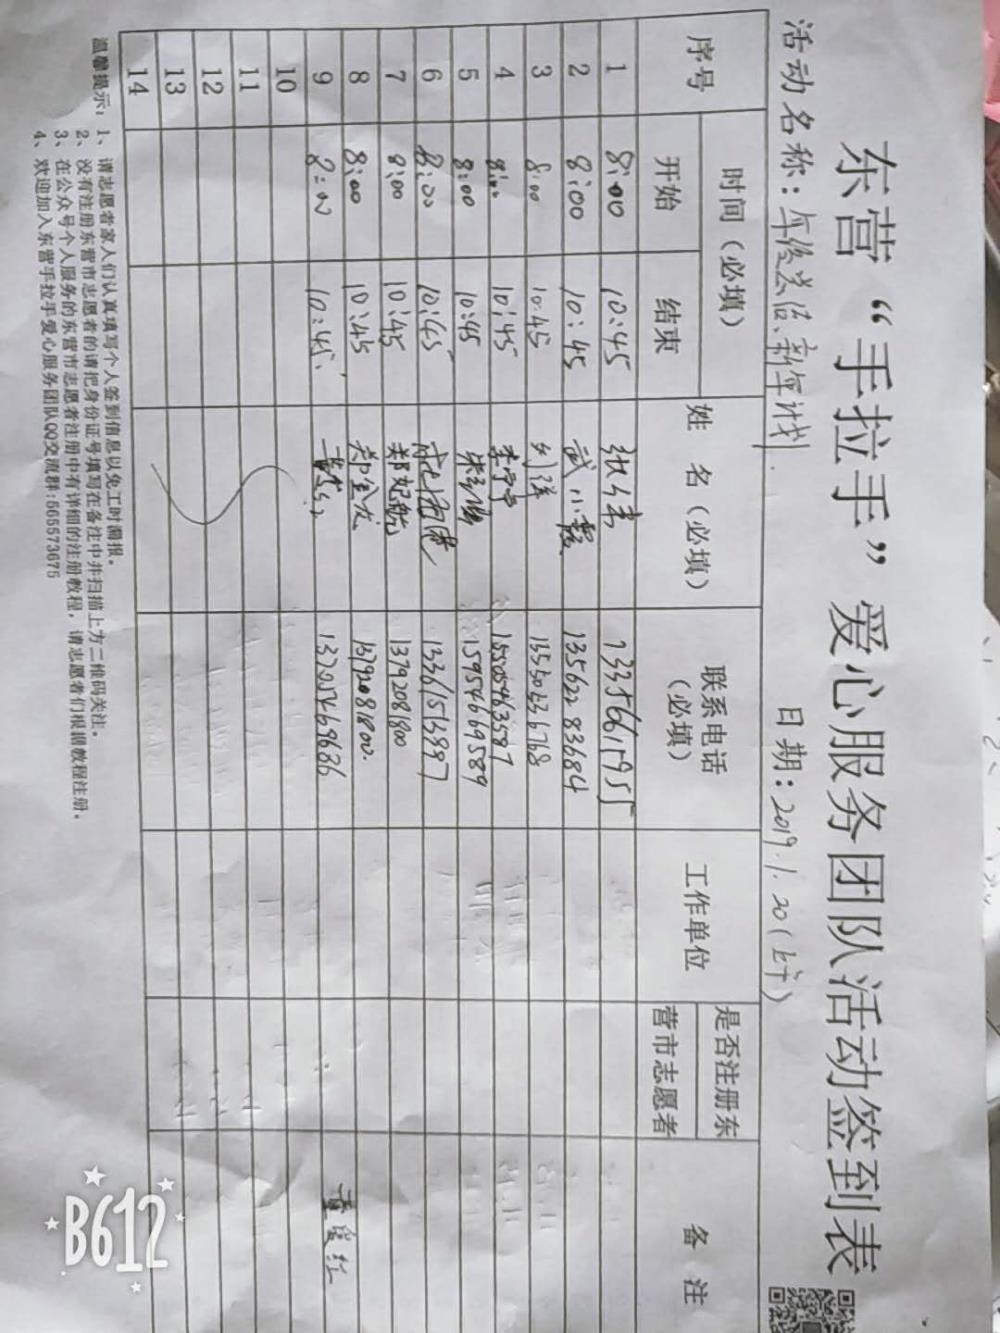 东营“手拉手”爱心服务团队活动签到表
活动名称： 日期：2019.1.20(上午)
序号 时间（必填） 姓 名（必填） 联系电话（必填） 工作单位 是否注册东营市志愿者 备 注
开始 结束
1 8:00 10:45
2 8:00 10:45 武小霞 13562283684
3 8:00 10:45 13530336768
4 8:00 10:45 李宁宁
5 8:00 10:45 15954669589
6 8:00 10:45 13361515997
7 8:00 10:45 13792081800
8 8:00 10:45 郑金友 13792081800
9 8:00 10:45 13705469686 黄爱红
10
11
12
13
14
温馨提示：1、请志愿者家人们认真填写个人签到信息以免工时漏报。
2、没有注册东营市志愿者的请把身份证号填写在备注中并扫描上方二维码关注。
3、在公众号个人服务的东营市志愿者注册中有详细的注册教程，请志愿者们根据教程注册。
4、欢迎加入东营手拉手爱心服务团队QQ交流群:565573675
B612